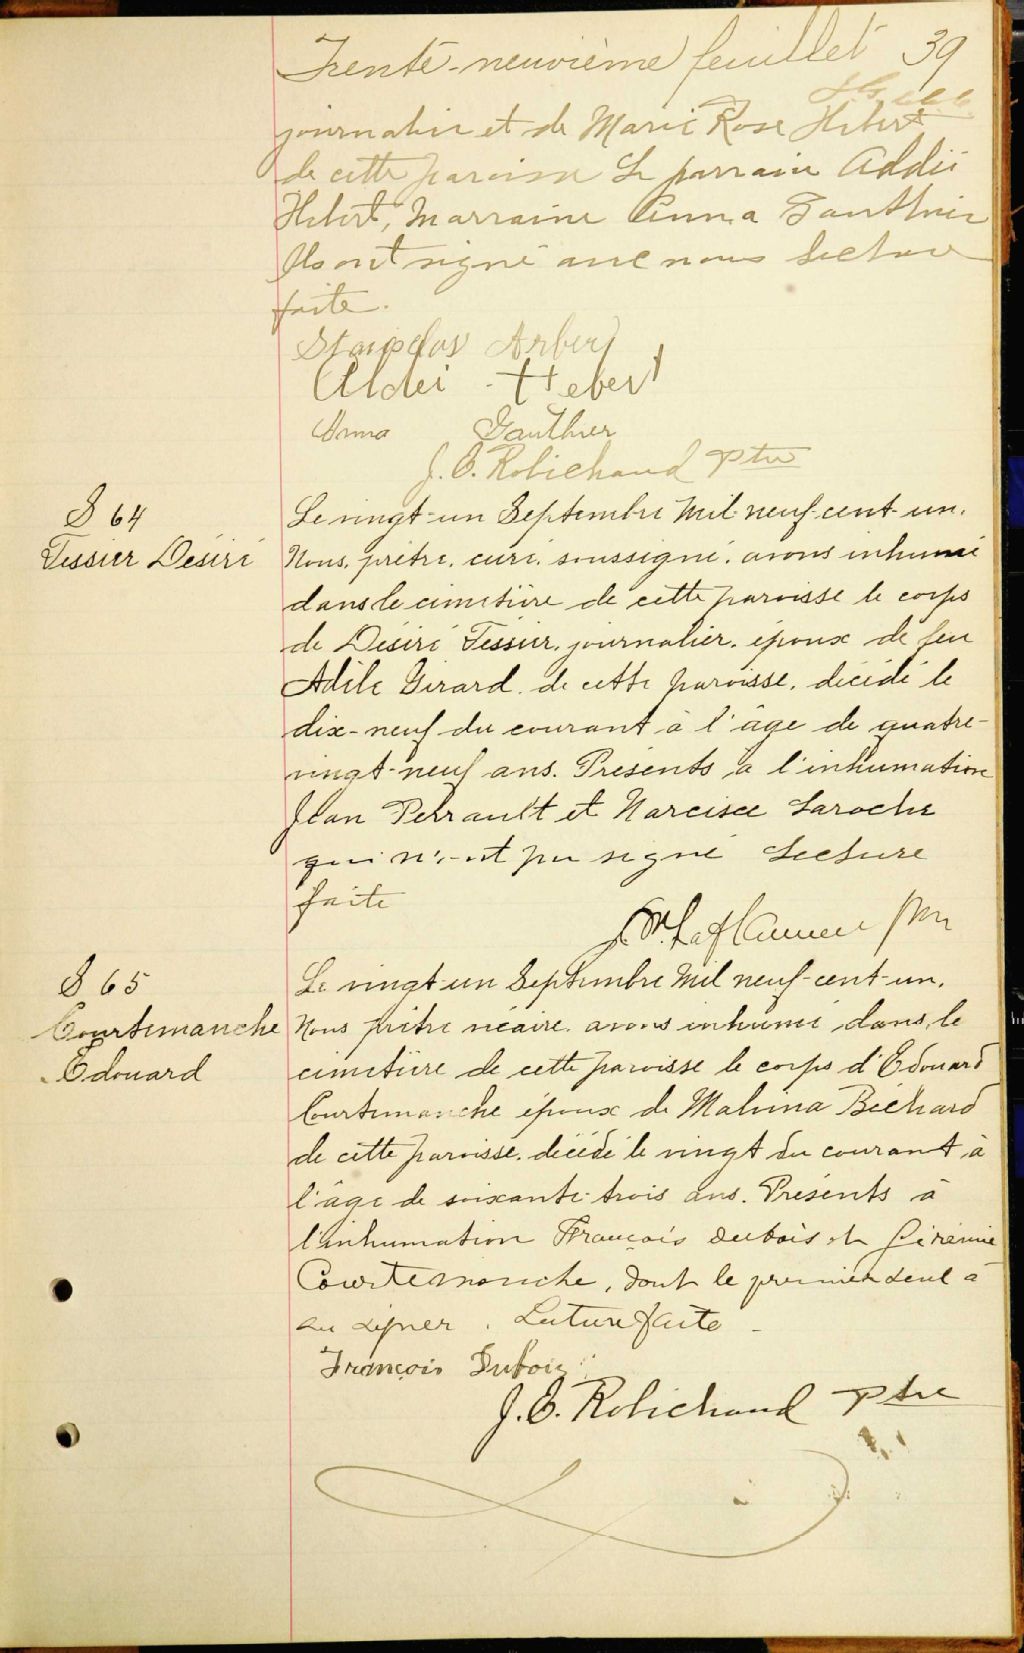 Trente-neuvième feuillet 39
journalier et de Marie Rose Hebert
de cette paroisse Le parrain Addii
Hebert, Marraine Anna Gauthier
Ils ont signé avec nous Lecture
faite.
Stanislas
Aldei Hebert
Anna Gauthier
J. E. Robichaud Ptre
S 64
Tessier Désiré
Le vingt-un Septembre Mil neuf-cent-un.
Nous, prêtre, curé, soussigné, avons inhumé
dans le cimetière de cette paroisse le corps
de Désiré Tessier, journalier, époux de feu
Adèle Girard, de cette paroisse, décédé le
dix-neuf du courant à l'âge de quatre-
vingt-neuf ans. Présents à l'inhumation
Jean Perrault et Narcisse Laroche
qui n'ont pu signé Lecture
faite
Laflamme Ptre
S 65
Courtemanche
Edouard
Le vingt-un Septembre Mil neuf-cent-un.
Nous prêtre vicaire, avons inhumé dans le
cimetière de cette paroisse le corps d'Edouard
Courtemanche époux de Malvina Béchard
de cette paroisse, décédé le vingt du courant à
l'âge de soixante-trois ans. Présents à
l'inhumation François Dubois et Jérémie
Courtemanche, dont le premier seul a
su signer. Lecture faite
François Dubois
J. E. Robichaud Ptre